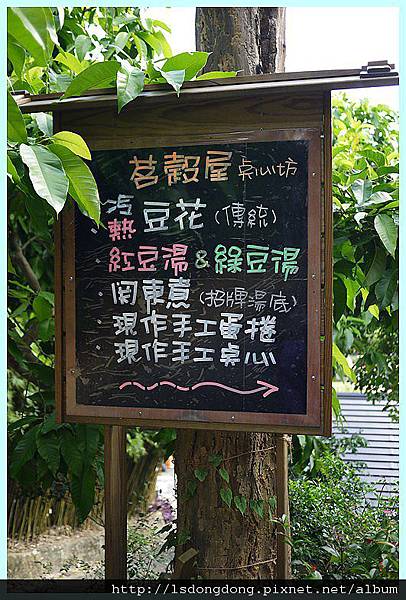 茗殼屋 桌心坊
冷熱 豆花 (傳統)
·紅豆湯 & 綠豆湯
·関東煮 (招牌湯底)
·現作手工蛋捲
·現作手工桌心
http://lsdongdong.pixnet.net/album